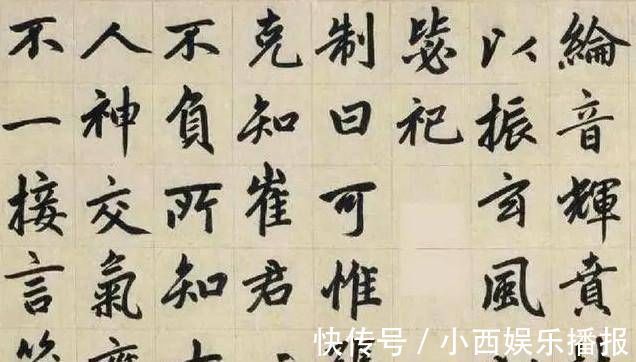 綸音輝賁
以振玄風
毖祀
制曰可惟
克知崔君
不負所知
人神交氣
不一接言
快传号 / 小西娱乐播报